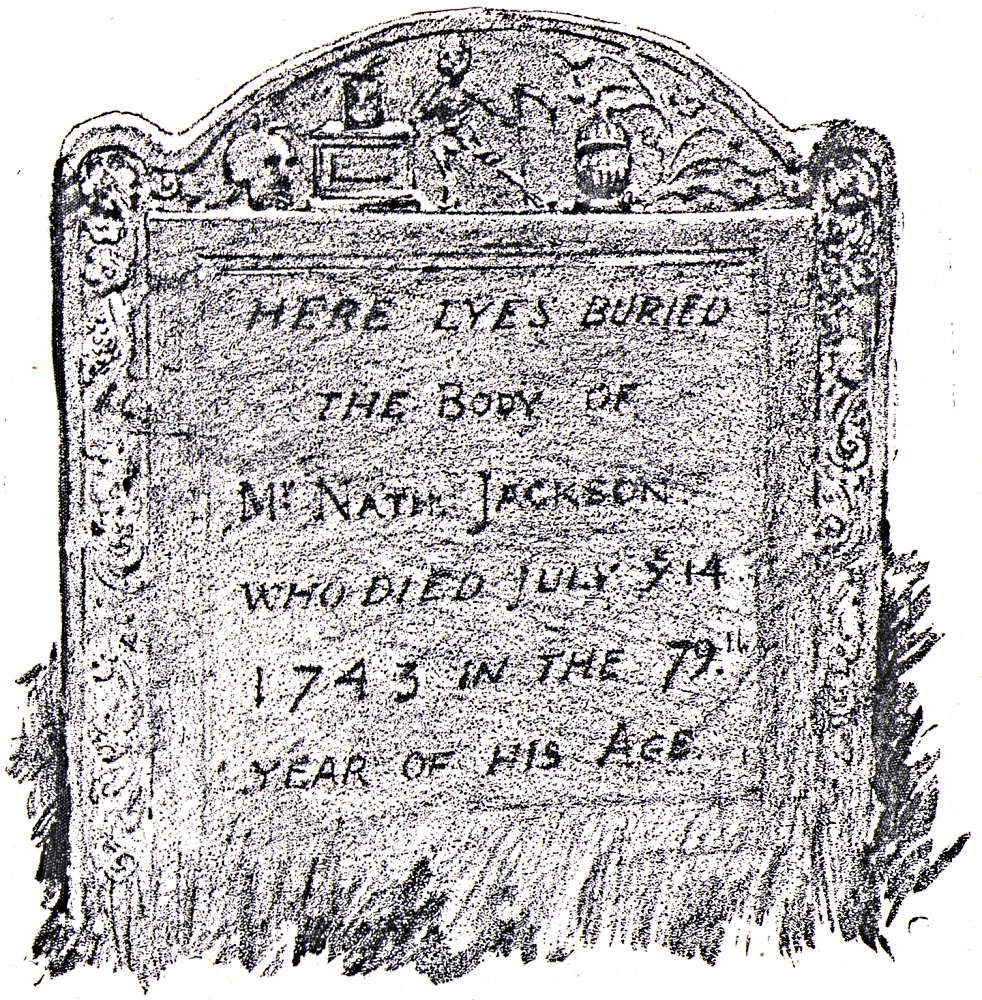 HERE LYES BURIED
THE BODY OF
Mr NATH. JACKSON.
WHO DIED JULY ye 14
1743 IN THE 79.th
YEAR OF HIS AGE